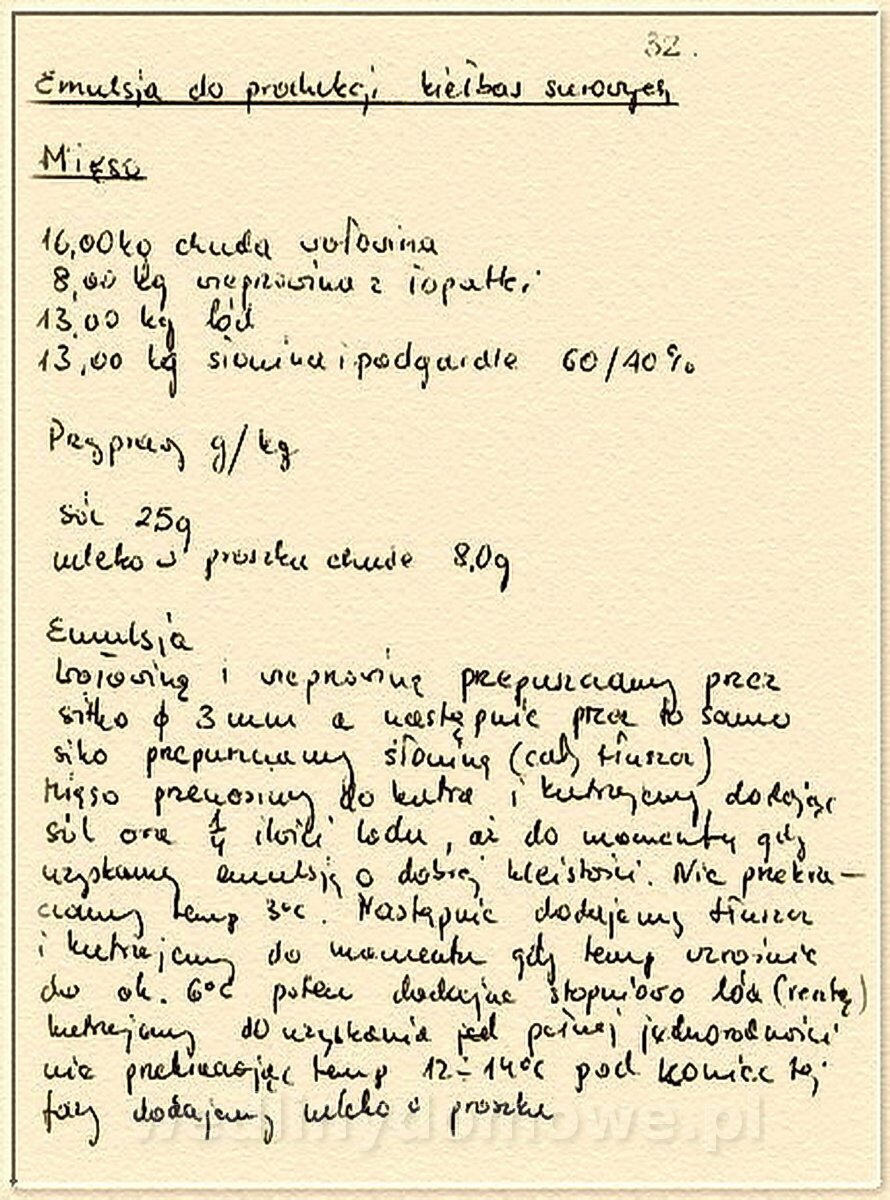 32.
Emulsja do produkcji kiełbas surowych
Mięso
16,00kg chuda wołowina
8,00 kg wieprzowina z łopatki
13,00 kg lód
13,00 kg słonina i podgardle 60/40%
Przyprawy g/kg
sól 25g
mleko w proszku chude 8,0g
Emulsja
Wołowinę i wieprzowinę przepuszczamy przez
sitko ϕ 3mm a następnie przez to samo
sitko przepuszczamy słoninę (cały tłuszcz)
Mięso przenosimy do kutra i kutrujemy dodając
sól oraz 1/4 ilości lodu, aż do momentu gdy
uzyskamy emulsję o dobrej kleistości. Nie przekra-
czamy temp 3°c. Następnie dodajemy tłuszcz
i kutrujemy do momentu gdy temp wzrośnie
do ok. 6°c potem dodając stopniowo lód (resztę)
kutrujemy do uzyskania jed pełnej jednorodności
nie przekraczając temp 12-14°c pod koniec tej
fazy dodajemy mleko w proszku
wedlinydomowe.pl